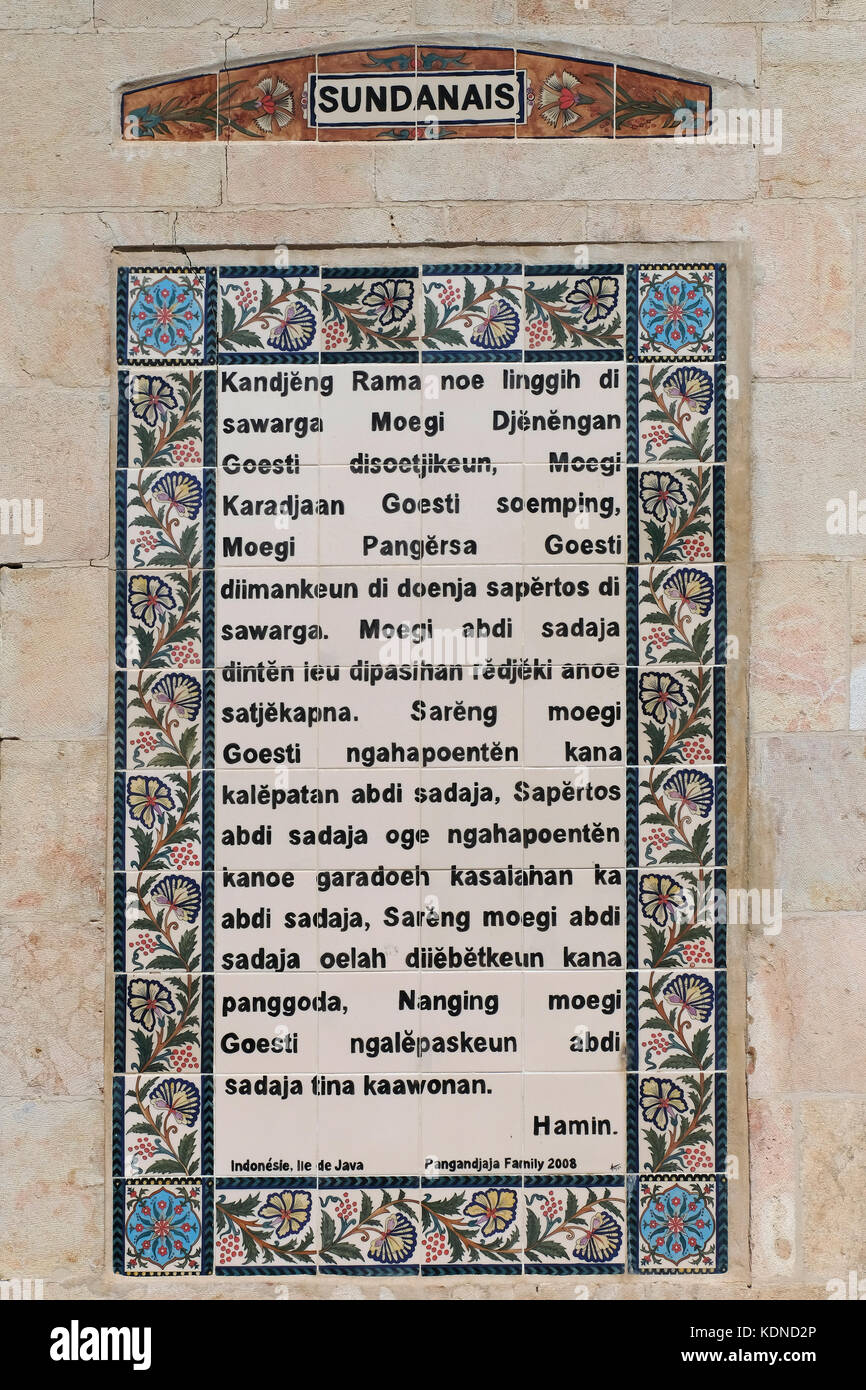 SUNDANAIS
Kandjĕng Rama noe linggih di
sawarga Moegi Djĕnĕngan
Goesti disoetjikeun, Moegi
Karadjaan Goesti soemping,
Moegi Pangĕrsa Goesti
diimankeun di doenja sapĕrtos di
sawarga. Moegi abdi sadaja
dintĕn ieu dipasihan rĕdjĕki anoe
satjĕkapna. Sarĕng moegi
Goesti ngahapoentĕn kana
kalĕpatan abdi sadaja, Sapĕrtos
abdi sadaja oge ngahapoentĕn
kanoe garadoeh kasalahan ka
abdi sadaja, Sarĕng moegi abdi
sadaja oelah diiĕbĕtkeun kana
panggoda, Nanging moegi
Goesti ngalĕpaskeun abdi
sadaja tina kaawonan.
Hamin.
Indonésie, Ile de Java Pangandjaja Family 2008
alamy
Image ID: KDND2P
www.alamy.com